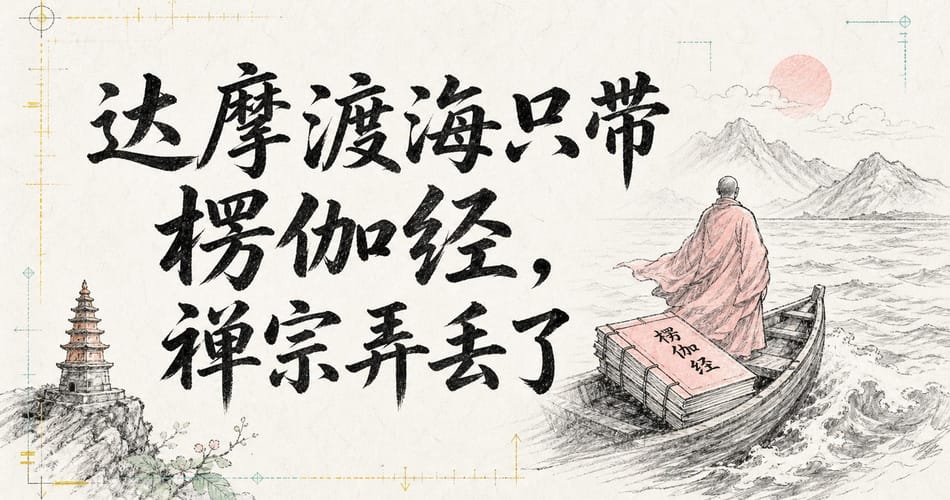 达摩渡海只带
楞伽经，
禅宗弄丢了
楞伽经